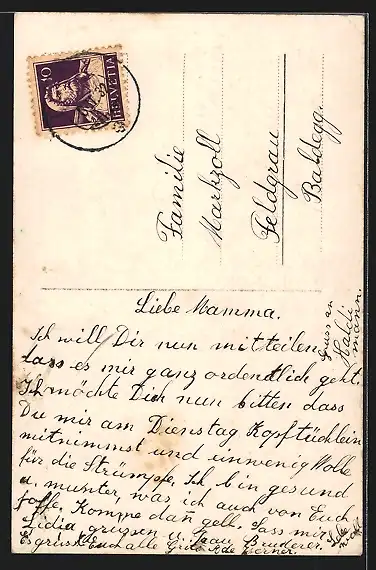 10
HELVETIA
Familie
Markzoll
Feldgrau
Baldegg.
Liebe Mamma.
Ich will Dir nun mitteilen,
dass es mir ganz ordentlich geht.
Ich möchte Dich nun bitten dass
Du mir am Dienstag Kopftüchlein
mitnimmst und einwenig Wolle
für die Strümpfe. Ich bin gesund
u. munter, was ich auch von Euch
hoffe. Komme dan gell. Lass mir
Lidia grüssen u. Frau Bruderer.
Es grüsst Euch alle
Gruss an
Haldi
mann.